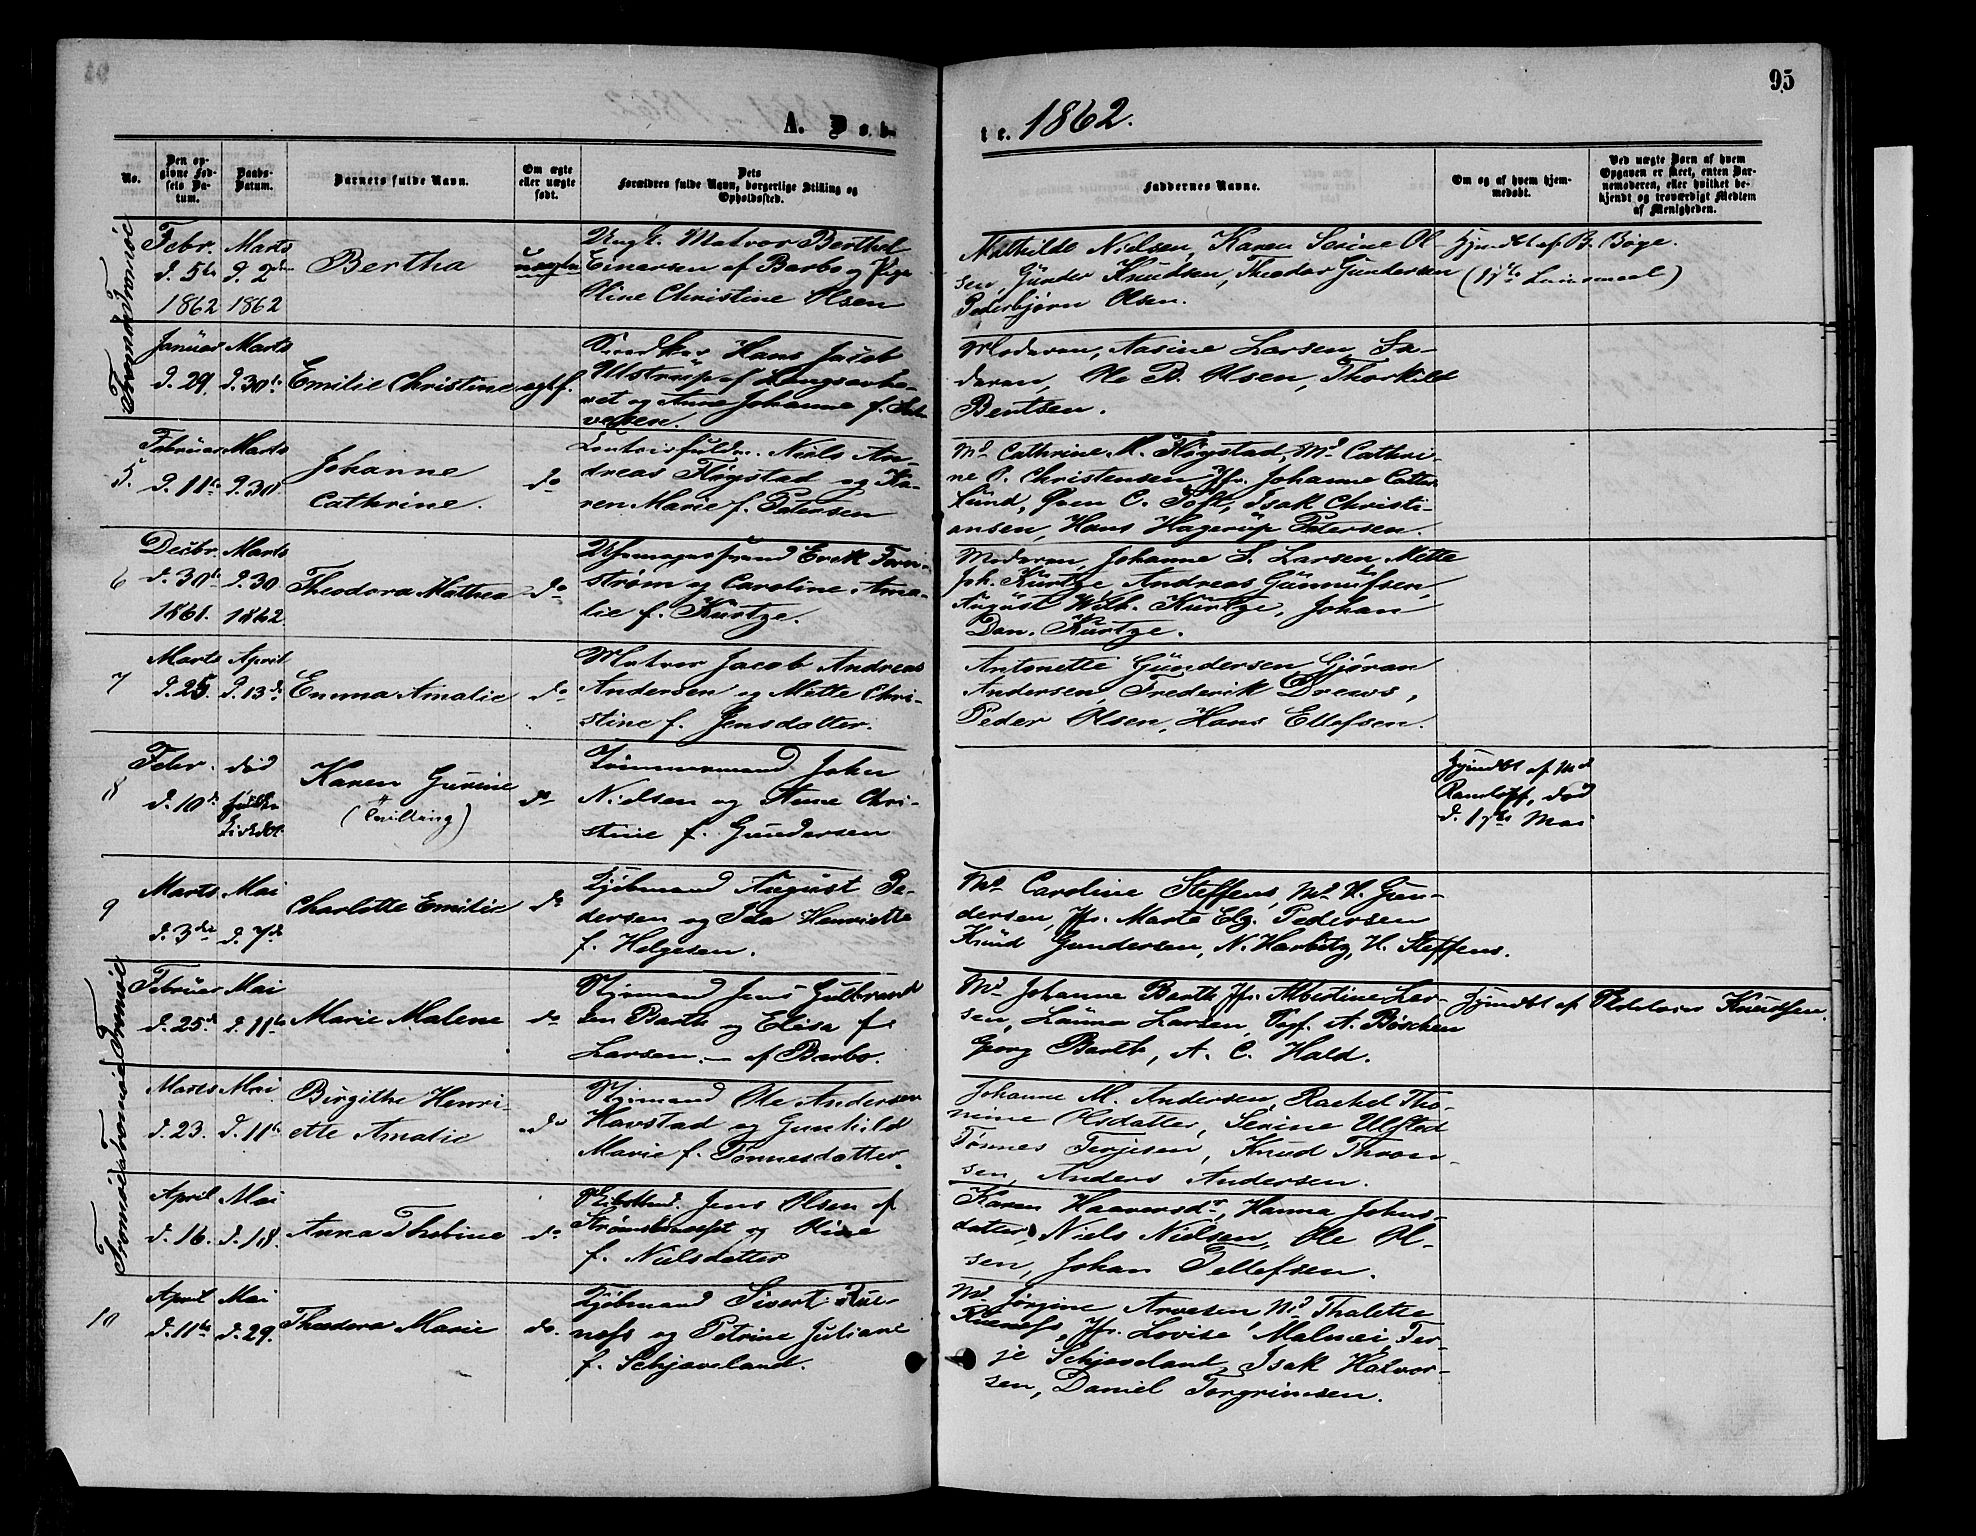 95
A. Døb-
te. 1862.
No.
Den op-
givne Fød-
sels Da-
tum.
Daabs-
Datum.
Barnets fulde Navn.
Om ægte
eller uægte
født.
Dets
Forældres fulde Navn, borgerlige Stilling og
Opholdssted.
Faddernes Navne.
Om og af hvem hjem-
medøbt.
Ved uægte Børn af hvem
Opgaven er skeet, enten Bar-
nemoderen, eller hvilket be-
kjendt og troværdigt Medlem
af Menigheden.
Tromøe
Febr.
d. 5te
1862
Marts
d. 2den
1862
Bertha
uægte
Ungk. Matros Berthel
Einersen af Barbo og Pige
Oline Christine Olsen
Mathilde Nielsen, Karen Serine Ol-
sen, Günder Knudsen, Theodor Gundersen
Pederbjørn Olsen.
Hjemdbt af B. Bøge.
Tromøe
Januar
d. 29.
Marts
d. 30te
Emilie Christine
egtf.
Hans Jacob
Ulstrup af Langsævha-
vet og Anne Johanne f.
Moderen, Aasine Larsen, Fa-
deren, Ole B. Olsen, Thorkild
Bentsen.
5.
Februar
d. 11te
Marts
d. 30
Johanne
Cathrine.
do
Niels An-
dreas Fløystad og Ka-
ren Marie f. Petersen
Md Cathrine M. Fløystad, Md Cathri-
ne O. Christensen Jfr. Johanne Cathr.
Lund, Øven C. Toft, Isak Christi-
ansen, Hans Hagerup Petersen.
6
Decbr.
d. 30te
1861.
Marts
d. 30
1862.
Theodora Mathea
do
Uhrmagersvend Erik Torn-
strøm og Caroline Ama-
lie f. Kurtze.
Moderen, Johanne S. Larsen, Mette
Joh. Kürtze, Andreas Günnufsen,
August Wilh. Kürtze, Johan
Dan. Kürtze.
7
Marts
d. 25.
April
d. 13de
Emma Amalie
do
Matros Jacob Andreas
Andersen og Mette Chri-
stine f. Jensdatter.
Antonette Gündersen Gjøran
Andersen, Frederik Drews,
Peder Olsen, Hans Ellefsen.
8
Febr.
d. 10de
død
Karen Gurine
(Tvilling)
do
Tømmermand John
Nielsen og Anne Chri-
stine f. Gundersen
Hjemdbt af Md
Ramloff, død
d. 17de Mai
9
Marts
d. 3die
Mai
d. 7de
Charlotte Emilie
do
Kjøbmand August Pe-
dersen og Ida Henriette
f. Helgesen.
Md Caroline Steffens, Md H. Gun-
dersen, Jfr. Marte Elg. Pedersen
Knüd Gundersen, N. Harbitz, H. Steffens.
Tromøe
Februar
d. 25de
Mai
d. 11te
Marie Malene
do
Styrmand Jens Gulbrand-
sen Barth og Elisa f.
Larsen. — af Barbo.
Md Johanne Barth Jfr. Albertine Lar-
sen, Laüra Larsen, Ungk. A. Bøschen
Georg Barth, A. C. Hald.
Hjemdbt af Knudsen.
Tromøe
Marts
d. 23.
Mai
d. 11te
Birgithe Henri-
ette Amalie
do
Styrmand Ole Andersen
Havstad og Gunhild
Marie f. Tønnesdatter.
Johanne M. Andersen, Rachel Tho-
mine Olsdatter, Serine Ulstad
Tønnes Terjesen, Knud Thron-
sen, Anders Andersen.
Tromøe
April
d. 16.
Mai
d. 18.
Anna Thobine
do
Jens Olsen af
Strømsbusnæsset og Oline
f. Nielsdatter
Karen Haaversdr, Hanna Johns-
datter, Niels Nielsen, Ole Ol-
sen, Johan Tellefsen.
10
April
d. 11te
Mai
d. 29.
Theodora Marie
do.
Kjøbmand Sivert Rue-
næss og Petrine Juliane
f. Schjaveland.
Md Jørgine Arvesen Md Thalette
Ruenæss, Jfr. Lovise Malmei, Ter-
je Schjaveland, Isak Halvor-
sen, Daniel Torgrimsen.